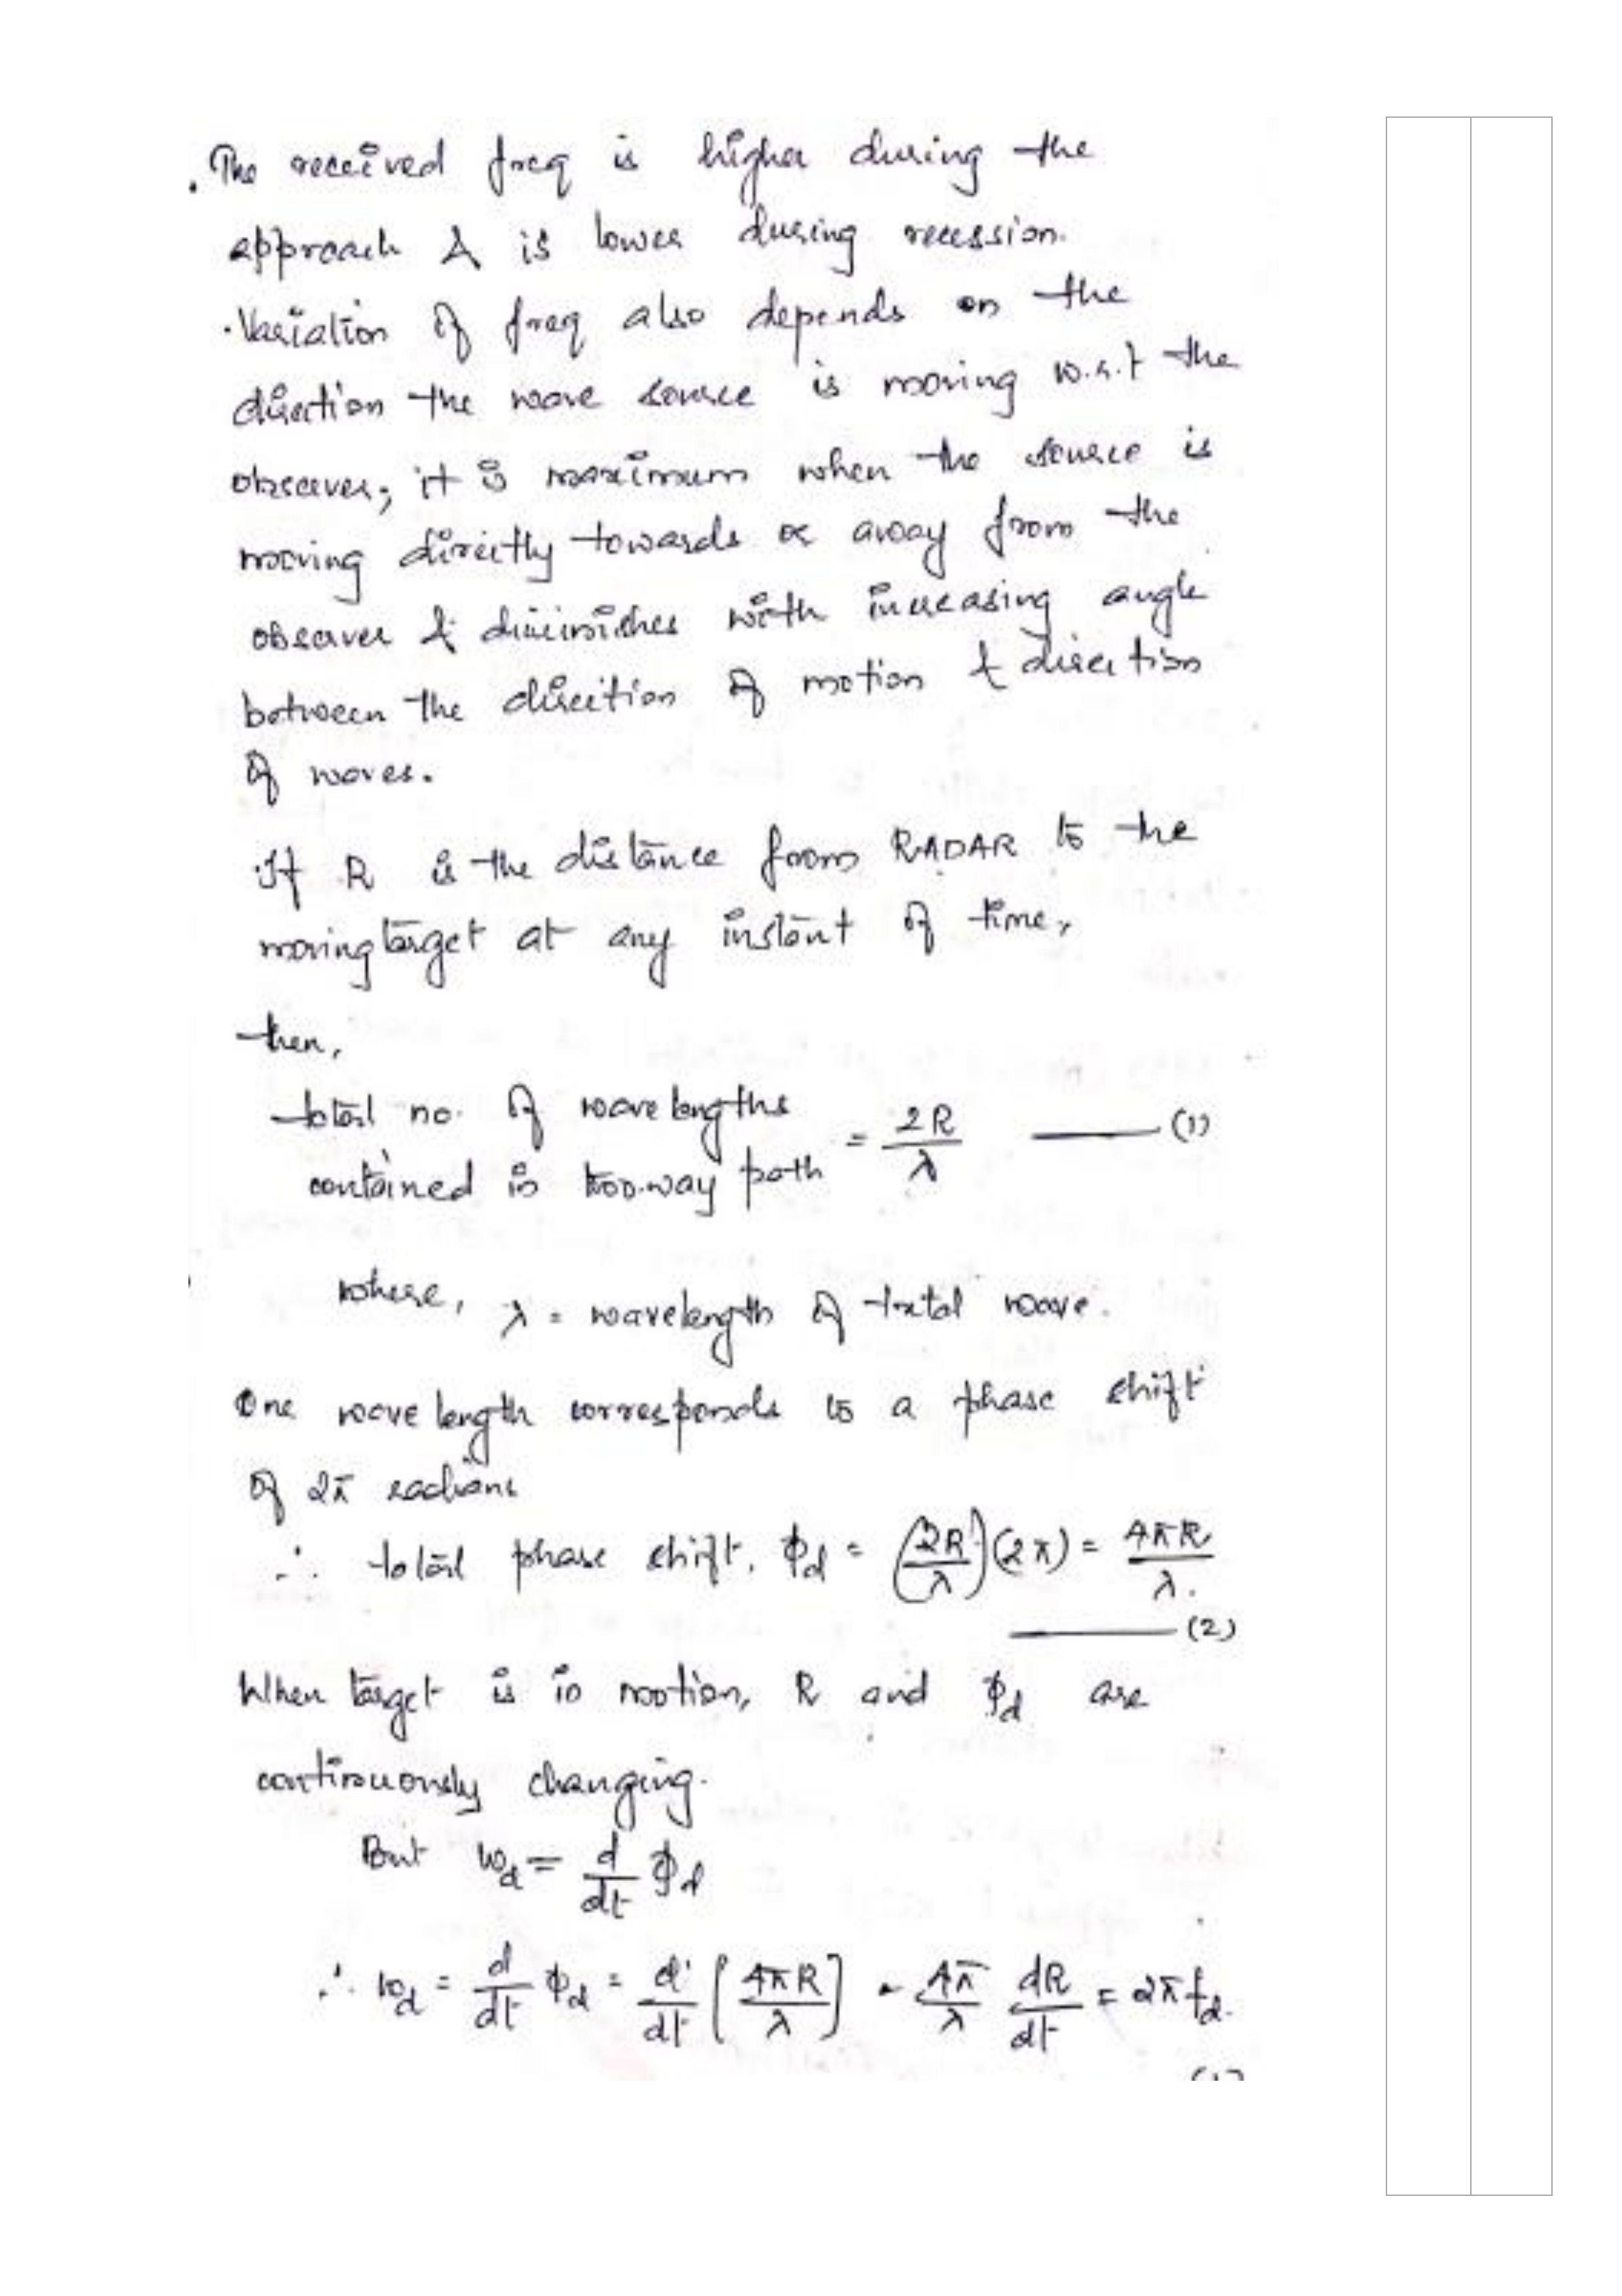 . The received freq is higher during the
approach & is lower during recession.
. Variation of freq also depends on the
direction the wave source is moving w.r.t the
observer; it is maximum when the source is
moving directly towards or away from the
observer & diminishes with increasing angle
between the direction of motion & direction
of waves.
. If R is the distance from RADAR to the
moving target at any instant of time,
then,
total no. of wavelengths
contained in two-way path = 2R/λ ——— (1)
where, λ = wavelength of wave.
One wavelength corresponds to a phase shift
of 2π radians
∴ total phase shift, ϕd = (2R/λ)(2π) = 4πR/λ.
——— (2)
When target is in motion, R and ϕd are
continuously changing.
But ωd = d/dt ϕd
∴ ωd = d/dt ϕd = d/dt [4πR/λ] = 4π/λ dR/dt = 2πfd.